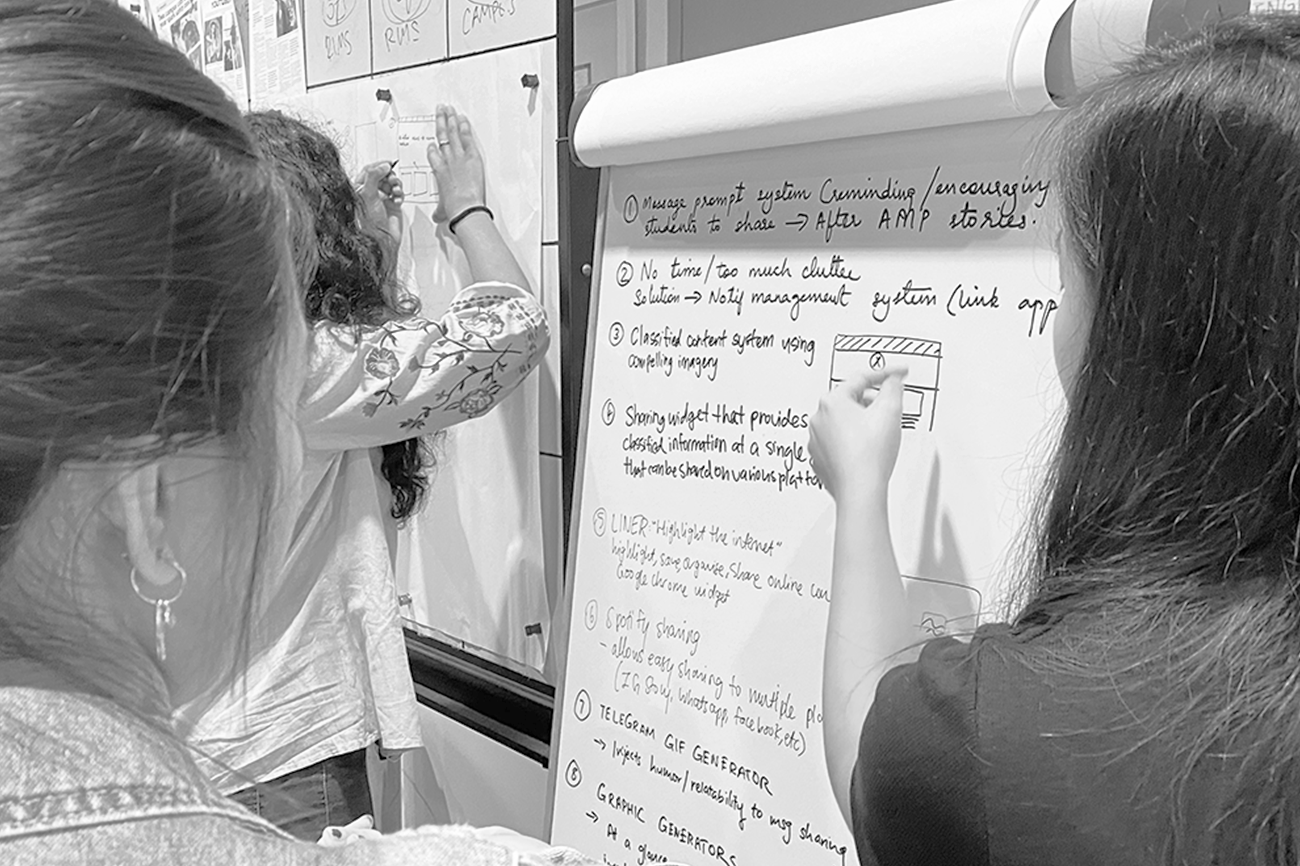 RUMS
CAMPUS
① Message prompt system (reminding/encouraging
students to share → After AMP stories.
② No time/too much clutter
Solution → Notif management system (link app
③ Classified content system using
compelling imagery
④ Sharing widget that provides
classified information at a single
that can be shared on various platfor
⑤ LINER: "Highlight the internet"
highlight, save, organise, share online con
Google chrome widget
⑥ Spotify sharing
- allows easy sharing to multiple pla
(IG Story, whatsapp, facebook, etc)
⑦ TELEGRAM GIF GENERATOR
→ Injects humor/relatability to msg sharing
⑧ GRAPHIC GENERATORS
→ At a glance